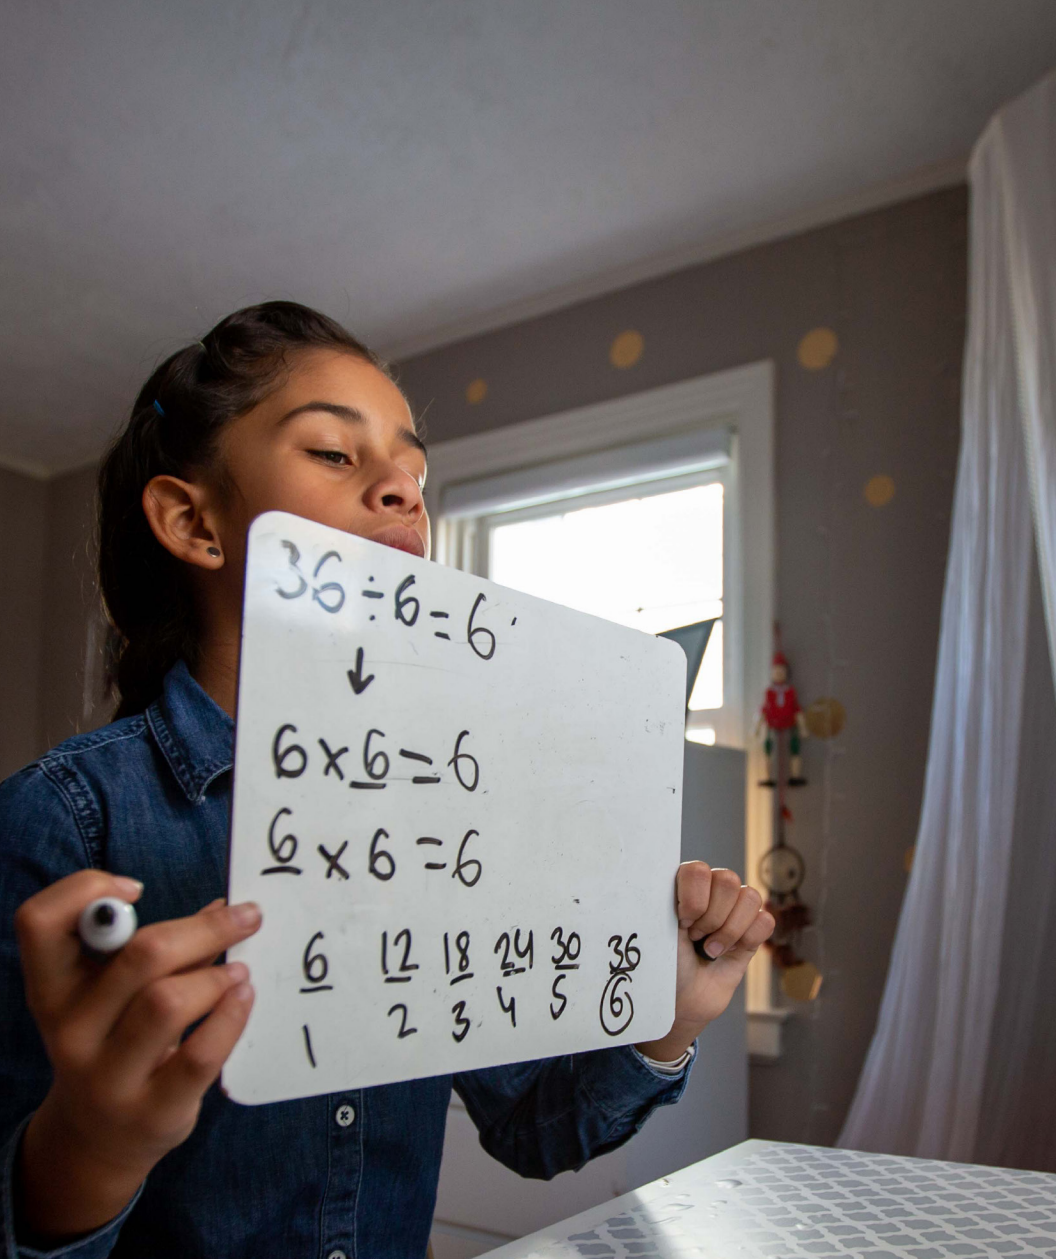 36 ÷ 6 = 6
↓
6 × 6 = 6
6 × 6 = 6
6 12 18 24 30 36
1 2 3 4 5 6